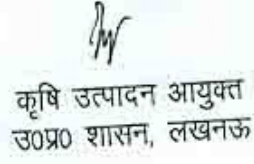 कृषि उत्पादन आयुक्त
उ०प्र० शासन, लखनऊ